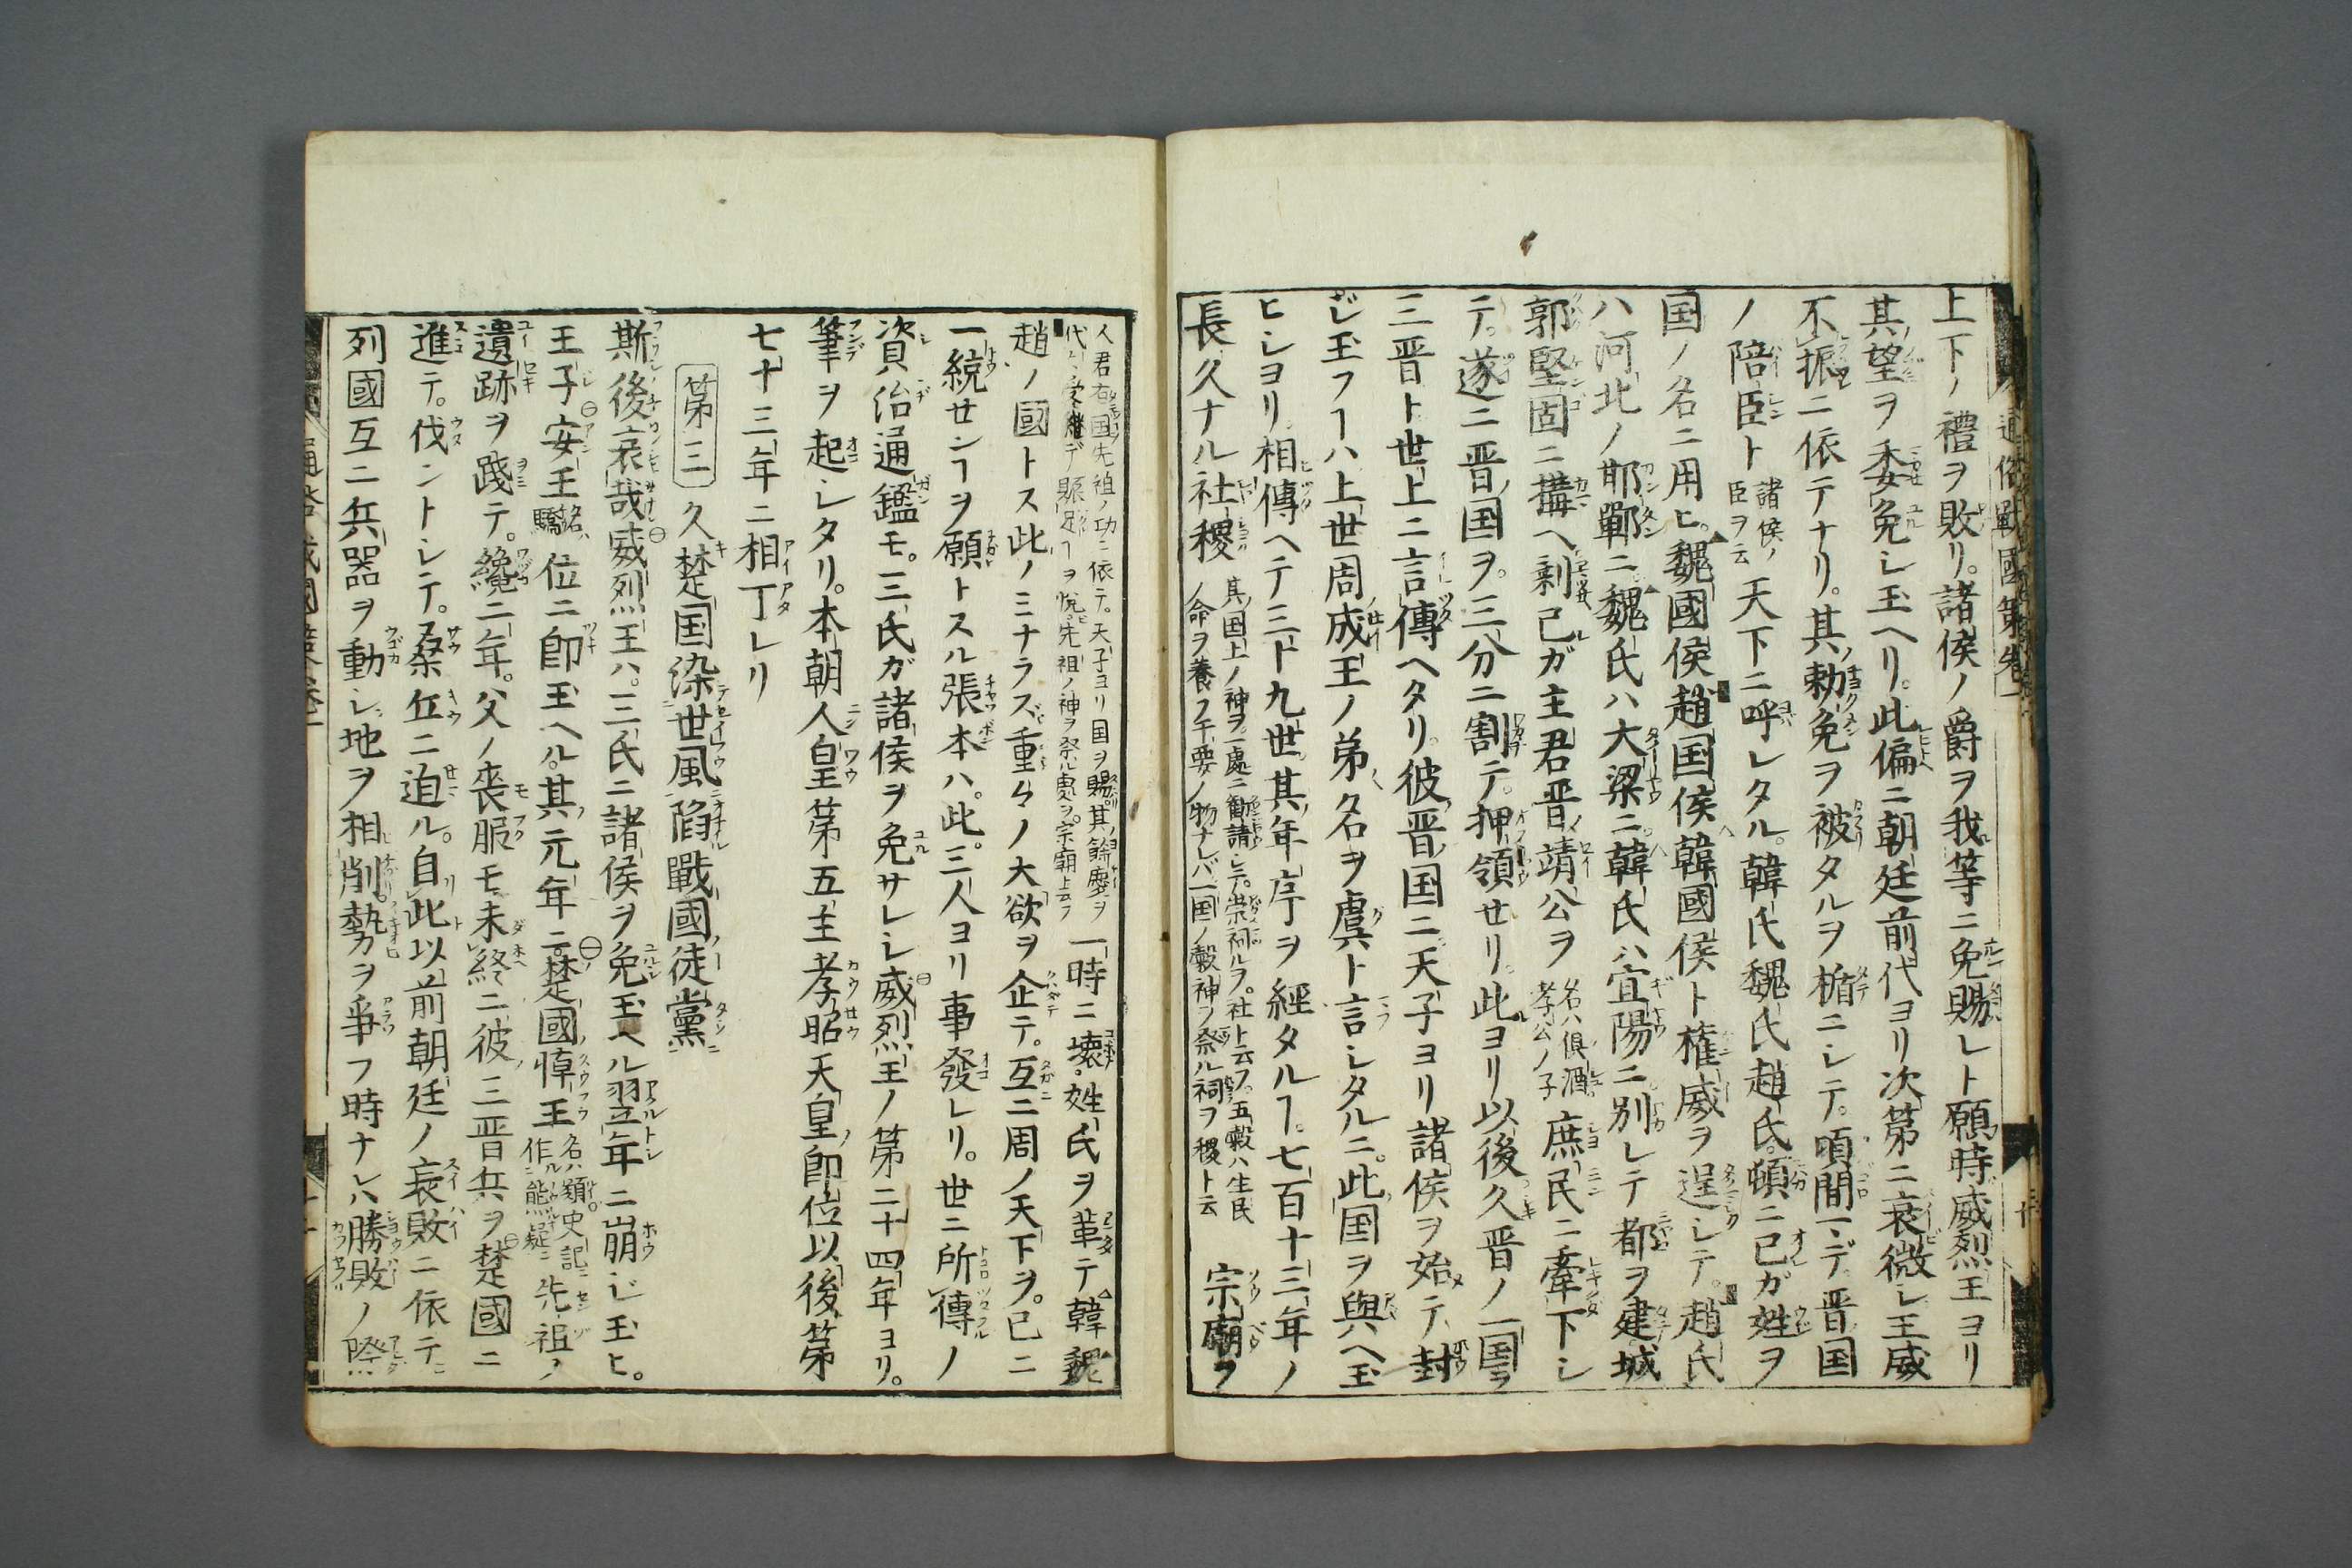 上下ノ禮ヲ敗リ。諸侯ノ爵ヲ我等ニ免賜レト願時威烈王ヨリ
其望ヲ委免シ玉ヘリ。此偏ニ朝廷前代ヨリ次第ニ衰微シ王威
不振ニ依テナリ。其勅免ヲ被タルヲ楯ニシテ。頃間マデ晋国
ノ陪臣ト諸侯ノ臣ヲ云天下ニ呼レタル。韓氏魏氏趙氏。頓ニ己ガ姓ヲ
国ノ名ニ用ヒ。魏國侯趙国侯韓國侯ト権威ヲ逞シテ。趙氏
ハ河北ノ邯鄲ニ魏氏ハ大梁ニ韓氏ハ宜陽ニ別レテ都ヲ建城
郭堅固ニ搆ヘ剰己ガ主君晋ノ靖公ヲ名ハ倶酒孝公ノ子庶民ニ牽下シ
テ。遂ニ晋国ヲ。三分ニ割テ。押領セリ。此ヨリ以後久晋ノ一国ヲ
三晋ト世上ニ言傳ヘタリ。彼晋国ニ天子ヨリ諸侯ヲ始テ封
ジ玉フヿハ上世周成王ノ弟名ヲ虞ト言シタルニ。此国ヲ與ヘ玉
ヒシヨリ。相傳ヘテ三十九世其年序ヲ經タルヿ。七百十三年ノ
長久ナル社稷其国上ノ神ヲ一處ニ勧請シテ。崇祠ルヲ。社ト云フ。五穀ハ生民ノ命ヲ養フ干要ノ物ナレバ一国ノ穀神ヲ祭ル祠ヲ稷ト云宗廟ヲ
人君右国先祖ノ功ニ依テ。天子ヨリ国ヲ賜。其餘慶ヲ代々受継デ賑足ヿヲ悦。先祖ノ神ヲ祭ル處ヲ。宗廟ト云フ一時ニ壊。姓氏ヲ革テ韓魏
趙ノ國トス此ノミナラズ重々ノ大欲ヲ企テ。互ニ周ノ天下ヲ。已ニ
一統センヿヲ願トスル張本ハ。此。三人ヨリ事發レリ。世ニ所傳ノ
資治通鑑モ。三氏ガ諸侯ヲ免サレシ威烈王ノ第二十四年ヨリ。
筆ヲ起シタリ。本朝人皇第五主孝昭天皇ノ即位以後、第
七十三年ニ相丁レリ
第三 久楚国染世風陷戰國徒黨
斯後哀哉威烈王ハ。三氏ニ諸侯ヲ免玉ヘル翌年ニ崩ジ玉ヒ。
王子安王名ハ驕位ニ即玉ヘル。其元年ニ。楚國悼王名ハ類。史記ニ作ル熊疑ニ先祖ノ
遺跡ヲ踐テ。纔ニ年。父ノ喪服モ未終ニ彼三晋兵ヲ楚國ニ
進テ。伐ントシテ。桑丘ニ迫ル。自此以前朝廷ノ衰敗ニ依テ
列國互ニ兵器ヲ動シ地ヲ相削。勢ヲ爭フ時ナレハ勝敗ノ際
通俗戰國策卷一